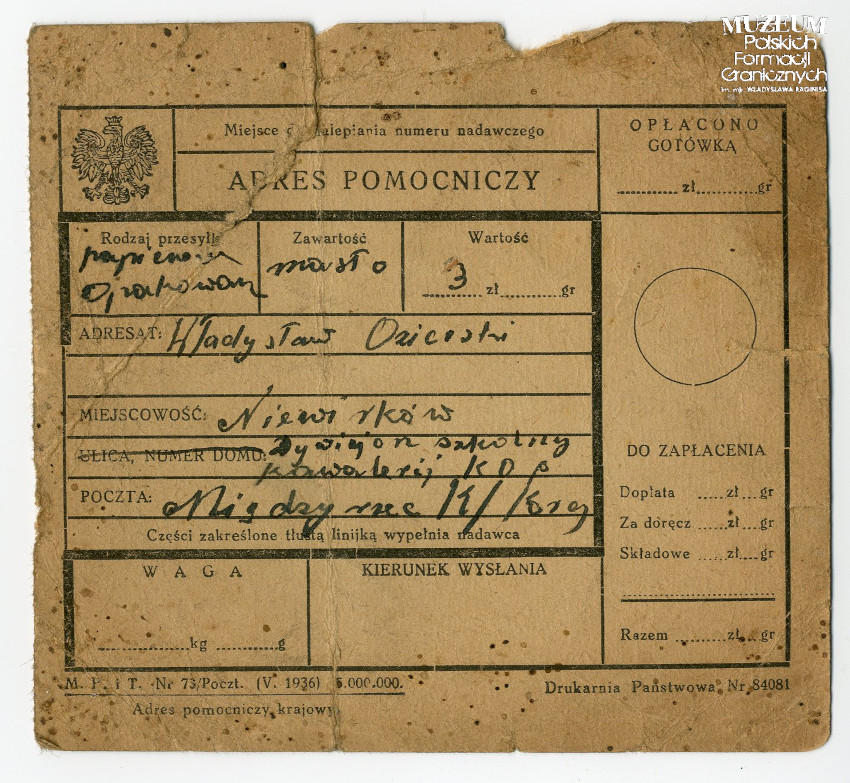 MUZEUM
Polskich
Formacji
Granicznych
im. mjr. WŁADYSŁAWA RAGINISA
Miejsce do nalepiania numeru nadawczego
ADRES POMOCNICZY
OPŁACONO
GOTÓWKĄ
zł gr
Rodzaj przesyłki
opakowan
Zawartość
masło
Wartość
3 zł gr
ADRESAT: Władysław
MIEJSCOWOŚĆ: Niewirków
ULICA, NUMER DOMU: Dywizjon szkolny
kawalerij KOP
POCZTA: Międzyrzec K/
Części zakreślone tłustą linijką wypełnia nadawca
WAGA
kg g
KIERUNEK WYSŁANIA
DO ZAPŁACENIA
Dopłata zł gr
Za doręcz zł gr
Składowe zł gr
Razem zł gr
M. P. i T. - Nr 73/Poczt. (V. 1936) 5.000.000.
Drukarnia Państwowa, Nr 84081
Adres pomocniczy krajowy.